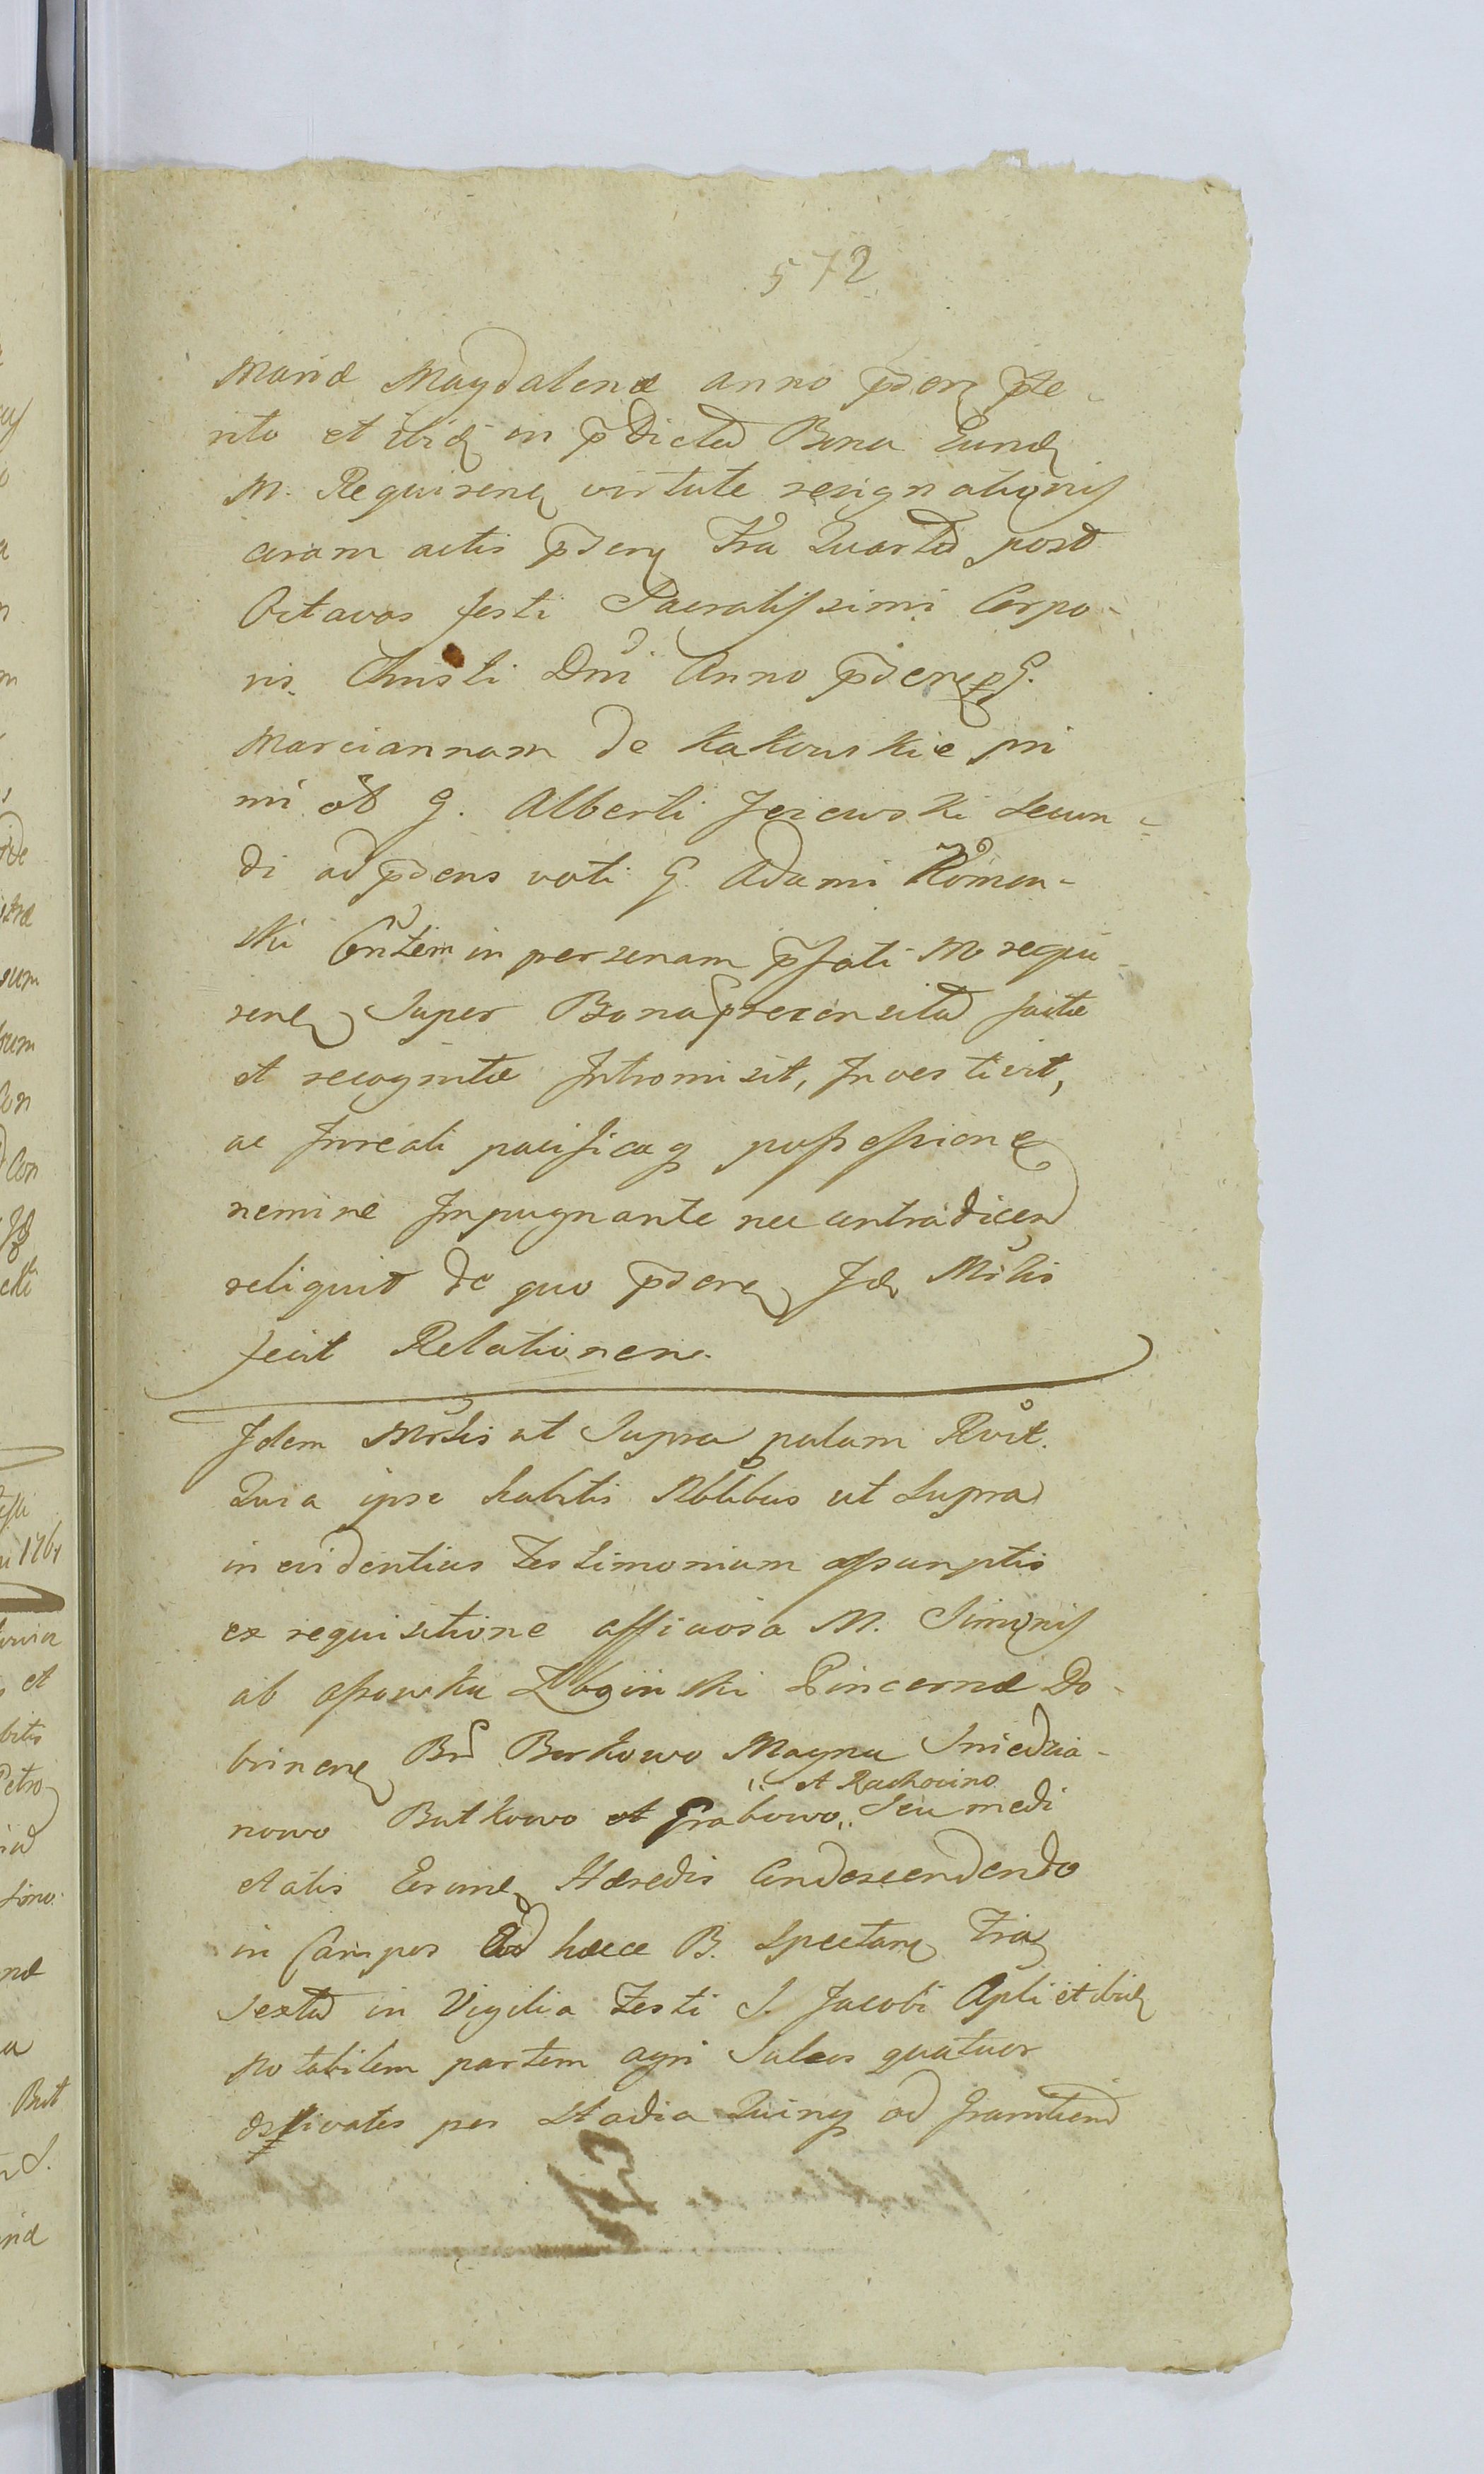 572
Mariæ Magdalenæ anno pden pte-
rito et ibid in pdicta Bona Eund
M. Requirene virtute resignationis
coram actis pden Fra Quarta post
Octavas festi Sacratissimi Corpo-
ris Christi Dni Anno pden p G.
Mariannam de Kakowskie pri
mi ot G. Alberti Jezewski Secun-
di ad pdens voti G. Adami
ski Cntem in personam pfati M requi-
rene Super Bona precensita factæ
et recognitæ Intromisit, Investivit,
ac In reali pacificaq possessione
nemine Impugnante nec contradicen
reliquit de quo pden Id Mrlis
fecit Relationem.
Idem Mrlis ut Supra palam Rvit.
Quia ipse habitis Nblibus ut Supra
in evidentius Testimonium assumptis
ex requisitione officiosa M. Simonis
ab Ossowka Zboinski Pincernæ Do-
brinen Br Borkowo Magna Sniedzia-
" et Rachocino
nowo Butkowo et Grabowo " Seu medi
etatis Earund Hæredis Condescendendo
in Campos Ad hæce B. Spectan Fria
Sexta in Vigilia Festi S. Jacobi Apli et ibid
notabilem partem agri Sulcos quatuor
per Stadia Quinq ad